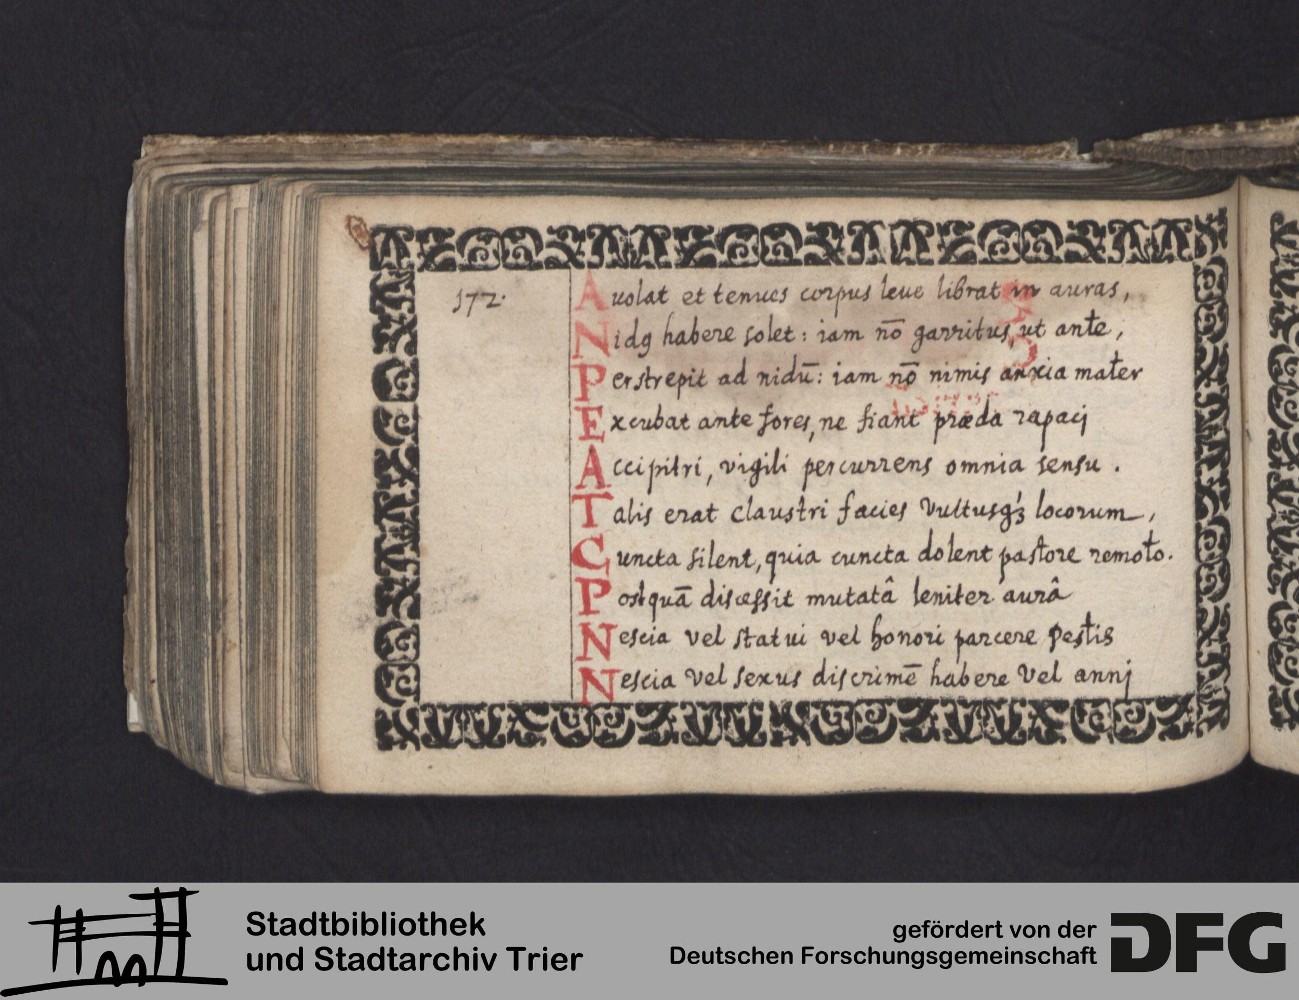 172.
Auolat et tenues corpus leue librat in auras,
Nidq habere solet: iam nō garritus, ut ante,
Perstrepit ad nidū: iam nō nimis anxia mater
Excubat ante fores, ne fiant præda rapaci
Accipitri, vigili percurrens omnia sensu.
Talis erat claustri facies Vultusq́ʒ locorum,
Cuncta silent, quia cuncta dolent pastore remoto.
Postquā discessit mutatâ leniter aurâ
Nescia vel statui vel honori parcere Pestis
Nescia Vel sexus discrimē habere Vel annj
Stadtbibliothek
und Stadtarchiv Trier
gefördert von der
Deutschen Forschungsgemeinschaft
DFG